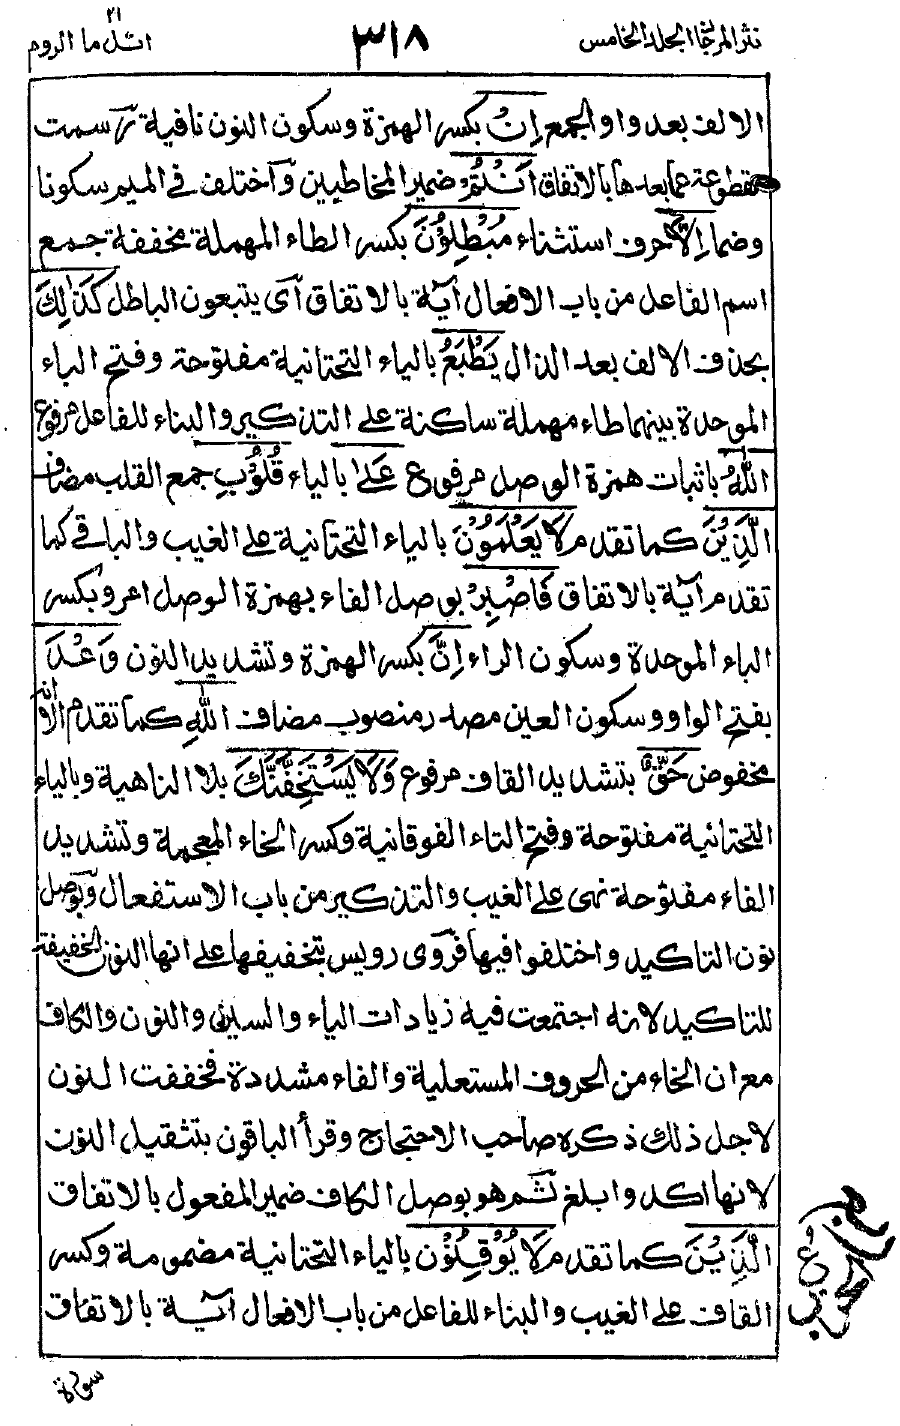 نثر المرجان المجلد الخامس
٣١٨
اتل ما ٢١ الروم
الالف بعد واو الجمع اِنْ بكسر الهمزة وسكون النون نافية رسمت
مقطوعة عما بعدها بالاتفاق اَنْتُمْ ضمير المخاطبين واختلف في الميم سكونا
وضما اِلَّا حرف استثناء مُبْطِلُوْنَ بكسر الطاء المهملة مخففة جمع
اسم الفاعل من باب الافعال آية بالاتفاق اى يتبعون الباطل كَذٰلِكَ
بحذف الالف بعد الذال يَطْبَعُ بالياء التحتانية مفتوحة وفتح الباء
الموحدة بينهما طاء مهملة ساكنة على التذكير والبناء للفاعل مرفوع
اللّٰهُ باثبات همزة الوصل مرفوع عَلٰى بالياء قُلُوْبِ جمع القلب مضاف
الَّذِيْنَ كما تقدم لَا يَعْلَمُوْنَ بالياء التحتانية على الغيب والباقي كما
تقدم آية بالاتفاق فَاصْبِرْ بوصل الفاء بهمزة الوصل امر وبكسر
الباء الموحدة وسكون الراء اِنَّ بكسر الهمزة وتشديد النون وَعْدَ
بفتح الواو وسكون العين مصدر منصوب مضاف اللّٰهِ كما تقدم الا انه
مخفوض حَقٌّ بتشديد القاف مرفوع وَلَا يَسْتَخِفَّنَّكَ بلا الناهية وبالياء
التحتانية مفتوحة وفتح التاء الفوقانية وكسر الخاء المعجمة وتشديد
الفاء مفتوحة نهى على الغيب والتذكير من باب الاستفعال وبوصل
نون التاكيد واختلفوا فيها فروى رويس بتخفيفها على انها النون الخفيفة
للتاكيد لانه اجتمعت فيه زيادات الياء والسين والنون والكاف
مع ان الخاء من الحروف المستعلية والفاء مشددة فخففت النون
لاجل ذلك ذكره صاحب الاحتجاج وقرأ الباقون بتثقيل النون
لانها اكد وابلغ ثم هو بوصل الكاف ضمير المفعول بالاتفاق
الَّذِيْنَ كما تقدم لَا يُوْقِنُوْن بالياء التحتانية مضمومة وكسر
القاف على الغيب والبناء للفاعل من باب الافعال آية بالاتفاق
سورة